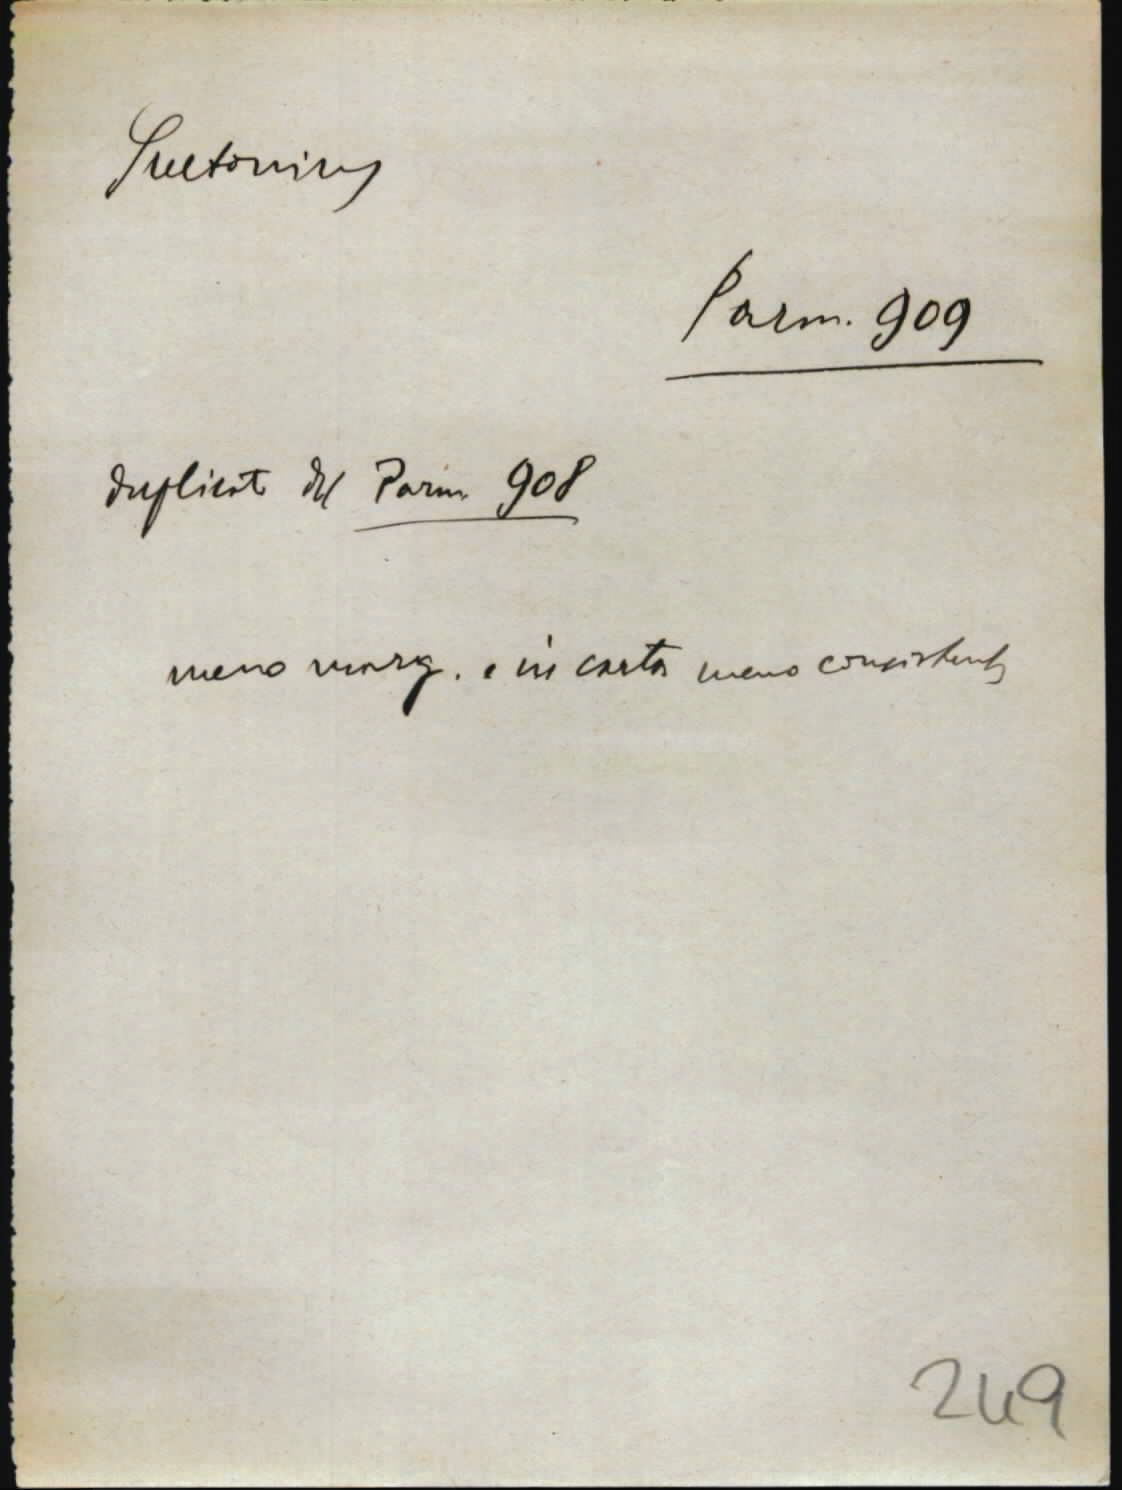 Suetonius
Parm. 909
duplicato del Parm. 908
meno marg. e in carta meno consistente
249